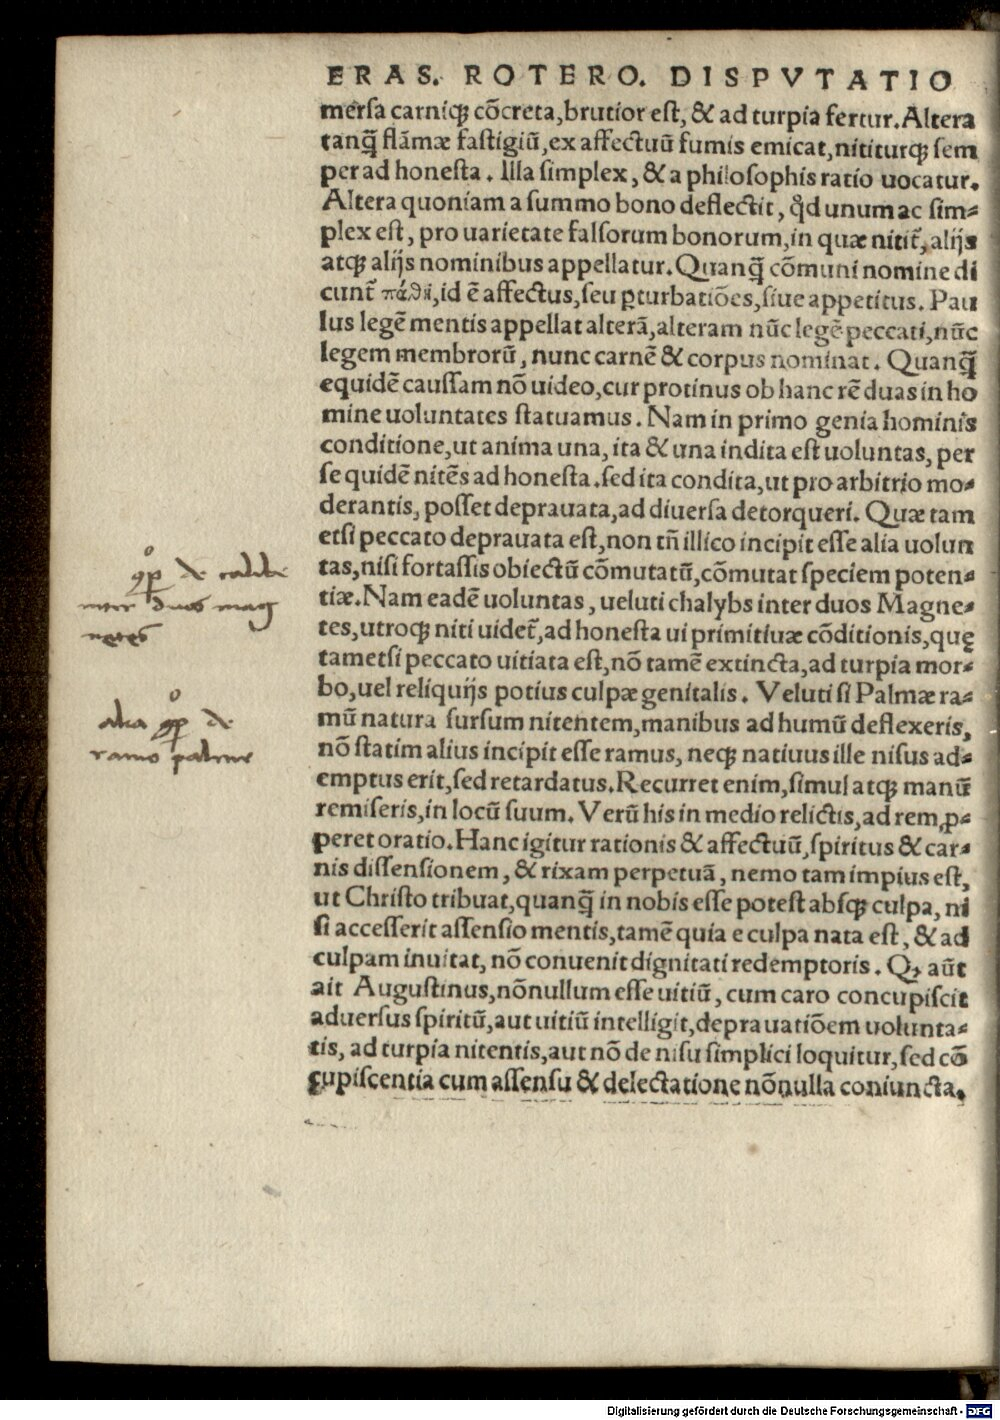 ERAS. ROTERO. DISPVTATIO
mersa carniqꝫ cõcreta, brutior est, & ad turpia fertur. Altera
tanq̃ flãmæ fastigiũ, ex affectuũ fumis emicat, nititurqꝫ sem
per ad honesta. Illa simplex, & a philosophis ratio uocatur.
Altera quoniam a summo bono deflectit, qd̃ unum ac sim-
plex est, pro uarietate falsorum bonorum, in quæ nitit̃, alijs
atqꝫ alijs nominibus appellatur. Quanq̃ cõmuni nomine di
cunt̃ πάθη, id ẽ affectus, seu ꝑturbatiões, siue appetitus. Pau
lus legẽ mentis appellat alterã, alteram nũc legẽ peccati, nũc
legem membrorũ, nunc carnẽ & corpus nominat. Quanq̃
equidẽ caussam nõ uideo, cur protinus ob hanc rẽ duas in ho
mine uoluntates statuamus. Nam in primo genia hominis
conditione, ut anima una, ita & una indita est uoluntas, per
se quidẽ nitẽs ad honesta. sed ita condita, ut pro arbitrio mo-
derantis, posset deprauata, ad diuersa detorqueri. Quæ tam
etsi peccato deprauata est, non tñ illico incipit esse alia uolun
tas, nisi fortassis obiectũ cõmutatũ, cõmutat speciem poten-
tiæ. Nam eadẽ uoluntas, ueluti chalybs inter duos Magne-
tes, utroqꝫ niti uidet̃, ad honesta ui primitiuæ cõditionis, quę
tametsi peccato uitiata est, nõ tamẽ extincta, ad turpia mor-
bo, uel reliquijs potius culpæ genitalis. Veluti si Palmæ ra-
mũ natura sursum nitentem, manibus ad humũ deflexeris,
nõ statim alius incipit esse ramus, neqꝫ natiuus ille nisus ad-
emptus erit, sed retardatus. Recurret enim, simul atqꝫ manũ
remiseris, in locũ suum. Verũ his in medio relictis, ad rem ꝓ-
peret oratio. Hanc igitur rationis & affectuũ, spiritus & car-
nis dissensionem, & rixam perpetuã, nemo tam impius est,
ut Christo tribuat, quanq̃ in nobis esse potest absqꝫ culpa, ni
si accesserit assensio mentis, tamẽ quia e culpa nata est, & ad
culpam inuitat, nõ conuenit dignitati redemptoris. Qꝫ aũt
ait Augustinus, nõnullum esse uitiũ, cum caro concupiscit
aduersus spiritũ, aut uitiũ intelligit, deprauatiõem uolunta-
tis, ad turpia nitentis, aut nõ de nisu simplici loquitur, sed cõ
cupiscentia cum assensu & delectatione nõnulla coniuncta.
de calibe
inter duos mag
netes
alia de
ramo palme
Digitalisierung gefördert durch die Deutsche Forschungsgemeinschaft - DFG